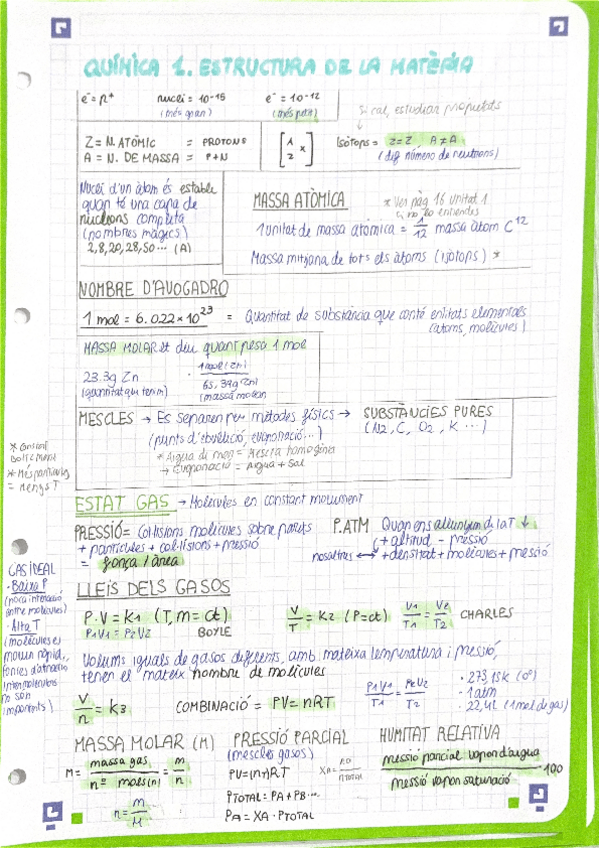 QUÍMICA 1. ESTRUCTURA DE LA MATÈRIA
e⁻= p⁺ nucli = 10-15 e⁻ = 10-12
(més gran) (més petit)
Si cal, estudiar propietats
Z = N. ATÒMIC = PROTONS
A = N. DE MASSA = P+N
[A Z X]
Isòtops = Z=Z, A≠A
(dif número de neutrons)
Nucli d'un àtom és estable
quan té una capa de
nucleons completa
(nombres màgics)
2,8,20,28,50... (A)
MASSA ATÒMICA
* Ver pàg 16 unitat 1
si no ho entiendes
1 unitat de massa atòmica = 1/12 massa àtom C12
Massa mitjana de tots els àtoms (isòtops) *
NOMBRE D'AVOGADRO
1 mol = 6.022 × 10^23 = Quantitat de substància que conté entitats elementals
(àtoms, molècules)
MASSA MOLAR et diu quant pesa 1 mol
23.3g Zn · 1 mol (Zn) / 65,39g Zn
(quantitat que tenim) (massa molar)
MESCLES → Es separen per mètodes físics → SUBSTÀNCIES PURES
(punts d'ebullició, evaporació...) (N2, C, O2, K ...)
* Aigua de mar = Mescla homogènia
→ Evaporació = Aigua + Sal
* Constant
Boltzmann
* Més partícules
= menys T
ESTAT GAS → Molècules en constant moviment
PRESSIÓ = Col·lisions molècules sobre parets
+ partícules + col·lisions + pressió
= força / àrea
P.ATM Quan ens allunyem de la T ↓
(+ altitud - pressió
nosaltres ↔ + densitat + molècules + pressió
GAS IDEAL
· Baixa P
(poca interacció
entre molècules)
· Alta T
(molècules es
mouen ràpid,
forces d'atracció
intermoleculars
no són
importants)
LLEIS DELS GASOS
P·V = K1 (T, m = ct)
P1V1 = P2V2 BOYLE
V/T = K2 (P=ct) V1/T1 = V2/T2 CHARLES
Volums iguals de gasos diferents, amb mateixa temperatura i pressió,
tenen el mateix nombre de molècules
V/n = K3 COMBINACIÓ = PV = nRT
P1V1/T1 = P2V2/T2
· 273,15K (0º)
· 1 atm
· 22,4L (1 mol de gas)
MASSA MOLAR (M)
M = massa gas / nº mols (n) = m/n
n = m/M
PRESSIÓ PARCIAL
(mescles gasos)
PV = (n+)RT
XA = nA / nTOTAL
PTOTAL = PA + PB...
PA = XA · PTOTAL
HUMITAT RELATIVA
pressió parcial vapor d'aigua / pressió vapor saturació · 100